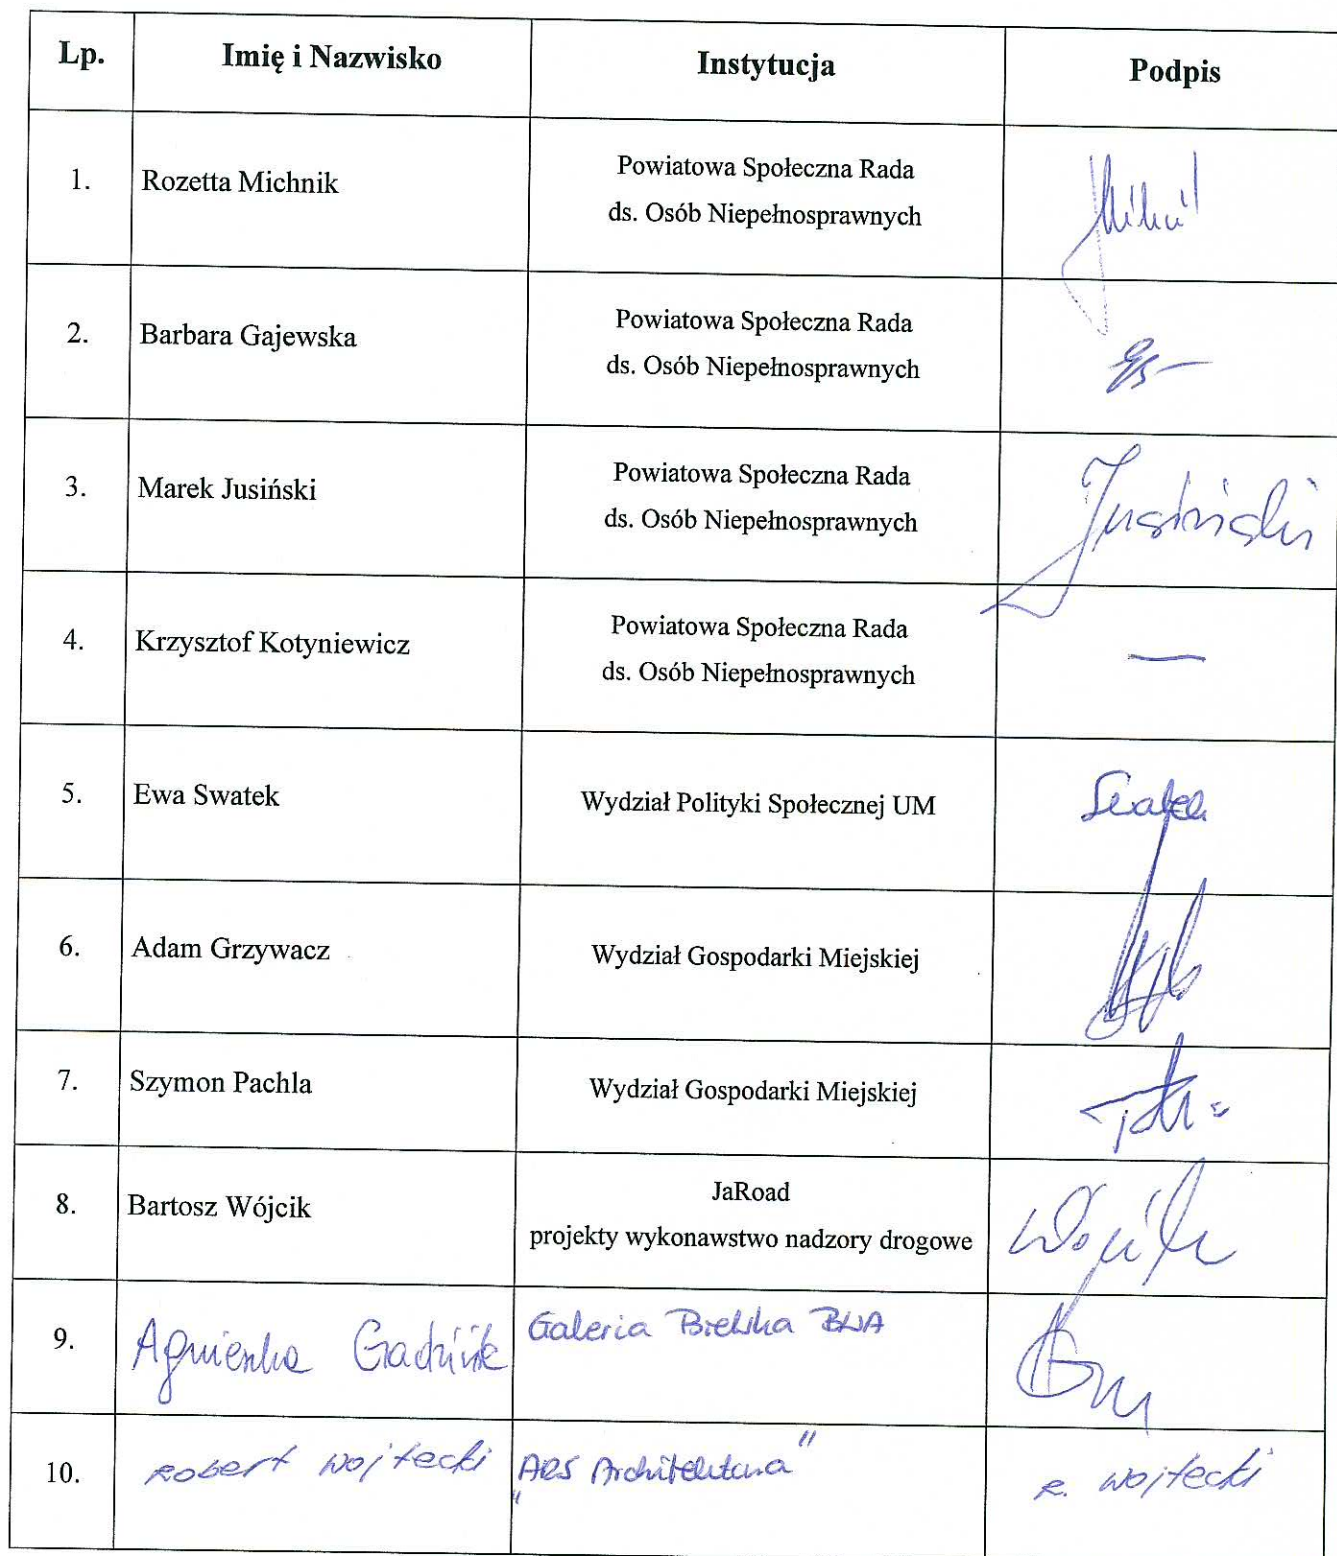 Lp. Imię i Nazwisko Instytucja Podpis
1. Rozetta Michnik Powiatowa Społeczna Rada
ds. Osób Niepełnosprawnych
2. Barbara Gajewska Powiatowa Społeczna Rada
ds. Osób Niepełnosprawnych
3. Marek Jusiński Powiatowa Społeczna Rada
ds. Osób Niepełnosprawnych Jusiński
4. Krzysztof Kotyniewicz Powiatowa Społeczna Rada
ds. Osób Niepełnosprawnych —
5. Ewa Swatek Wydział Polityki Społecznej UM
6. Adam Grzywacz Wydział Gospodarki Miejskiej
7. Szymon Pachla Wydział Gospodarki Miejskiej
8. Bartosz Wójcik JaRoad
projekty wykonawstwo nadzory drogowe Wójcik
9. Agnieszka Galeria Bielska BWA
10. Robert Wojtecki "ARS Architektura" R. Wojtecki